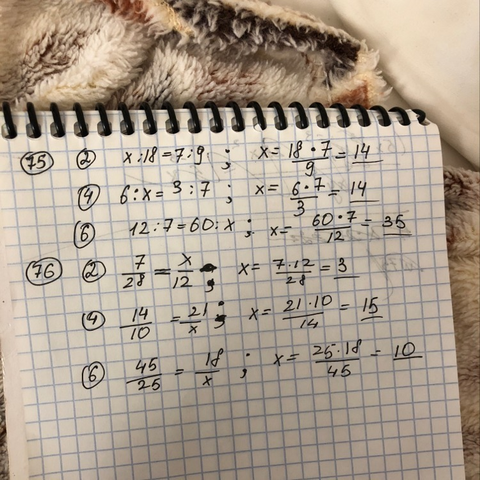 75 2 x:18=7:9 ; x=18·7/9=14
4 6:x=3:7 ; x=6·7/3=14
6 12:7=60:x ; x=60·7/12=35
76 2 7/28=x/12 ; x=7·12/28=3
4 14/10=21/x ; x=21·10/14=15
6 45/25=18/x ; x=25·18/45=10